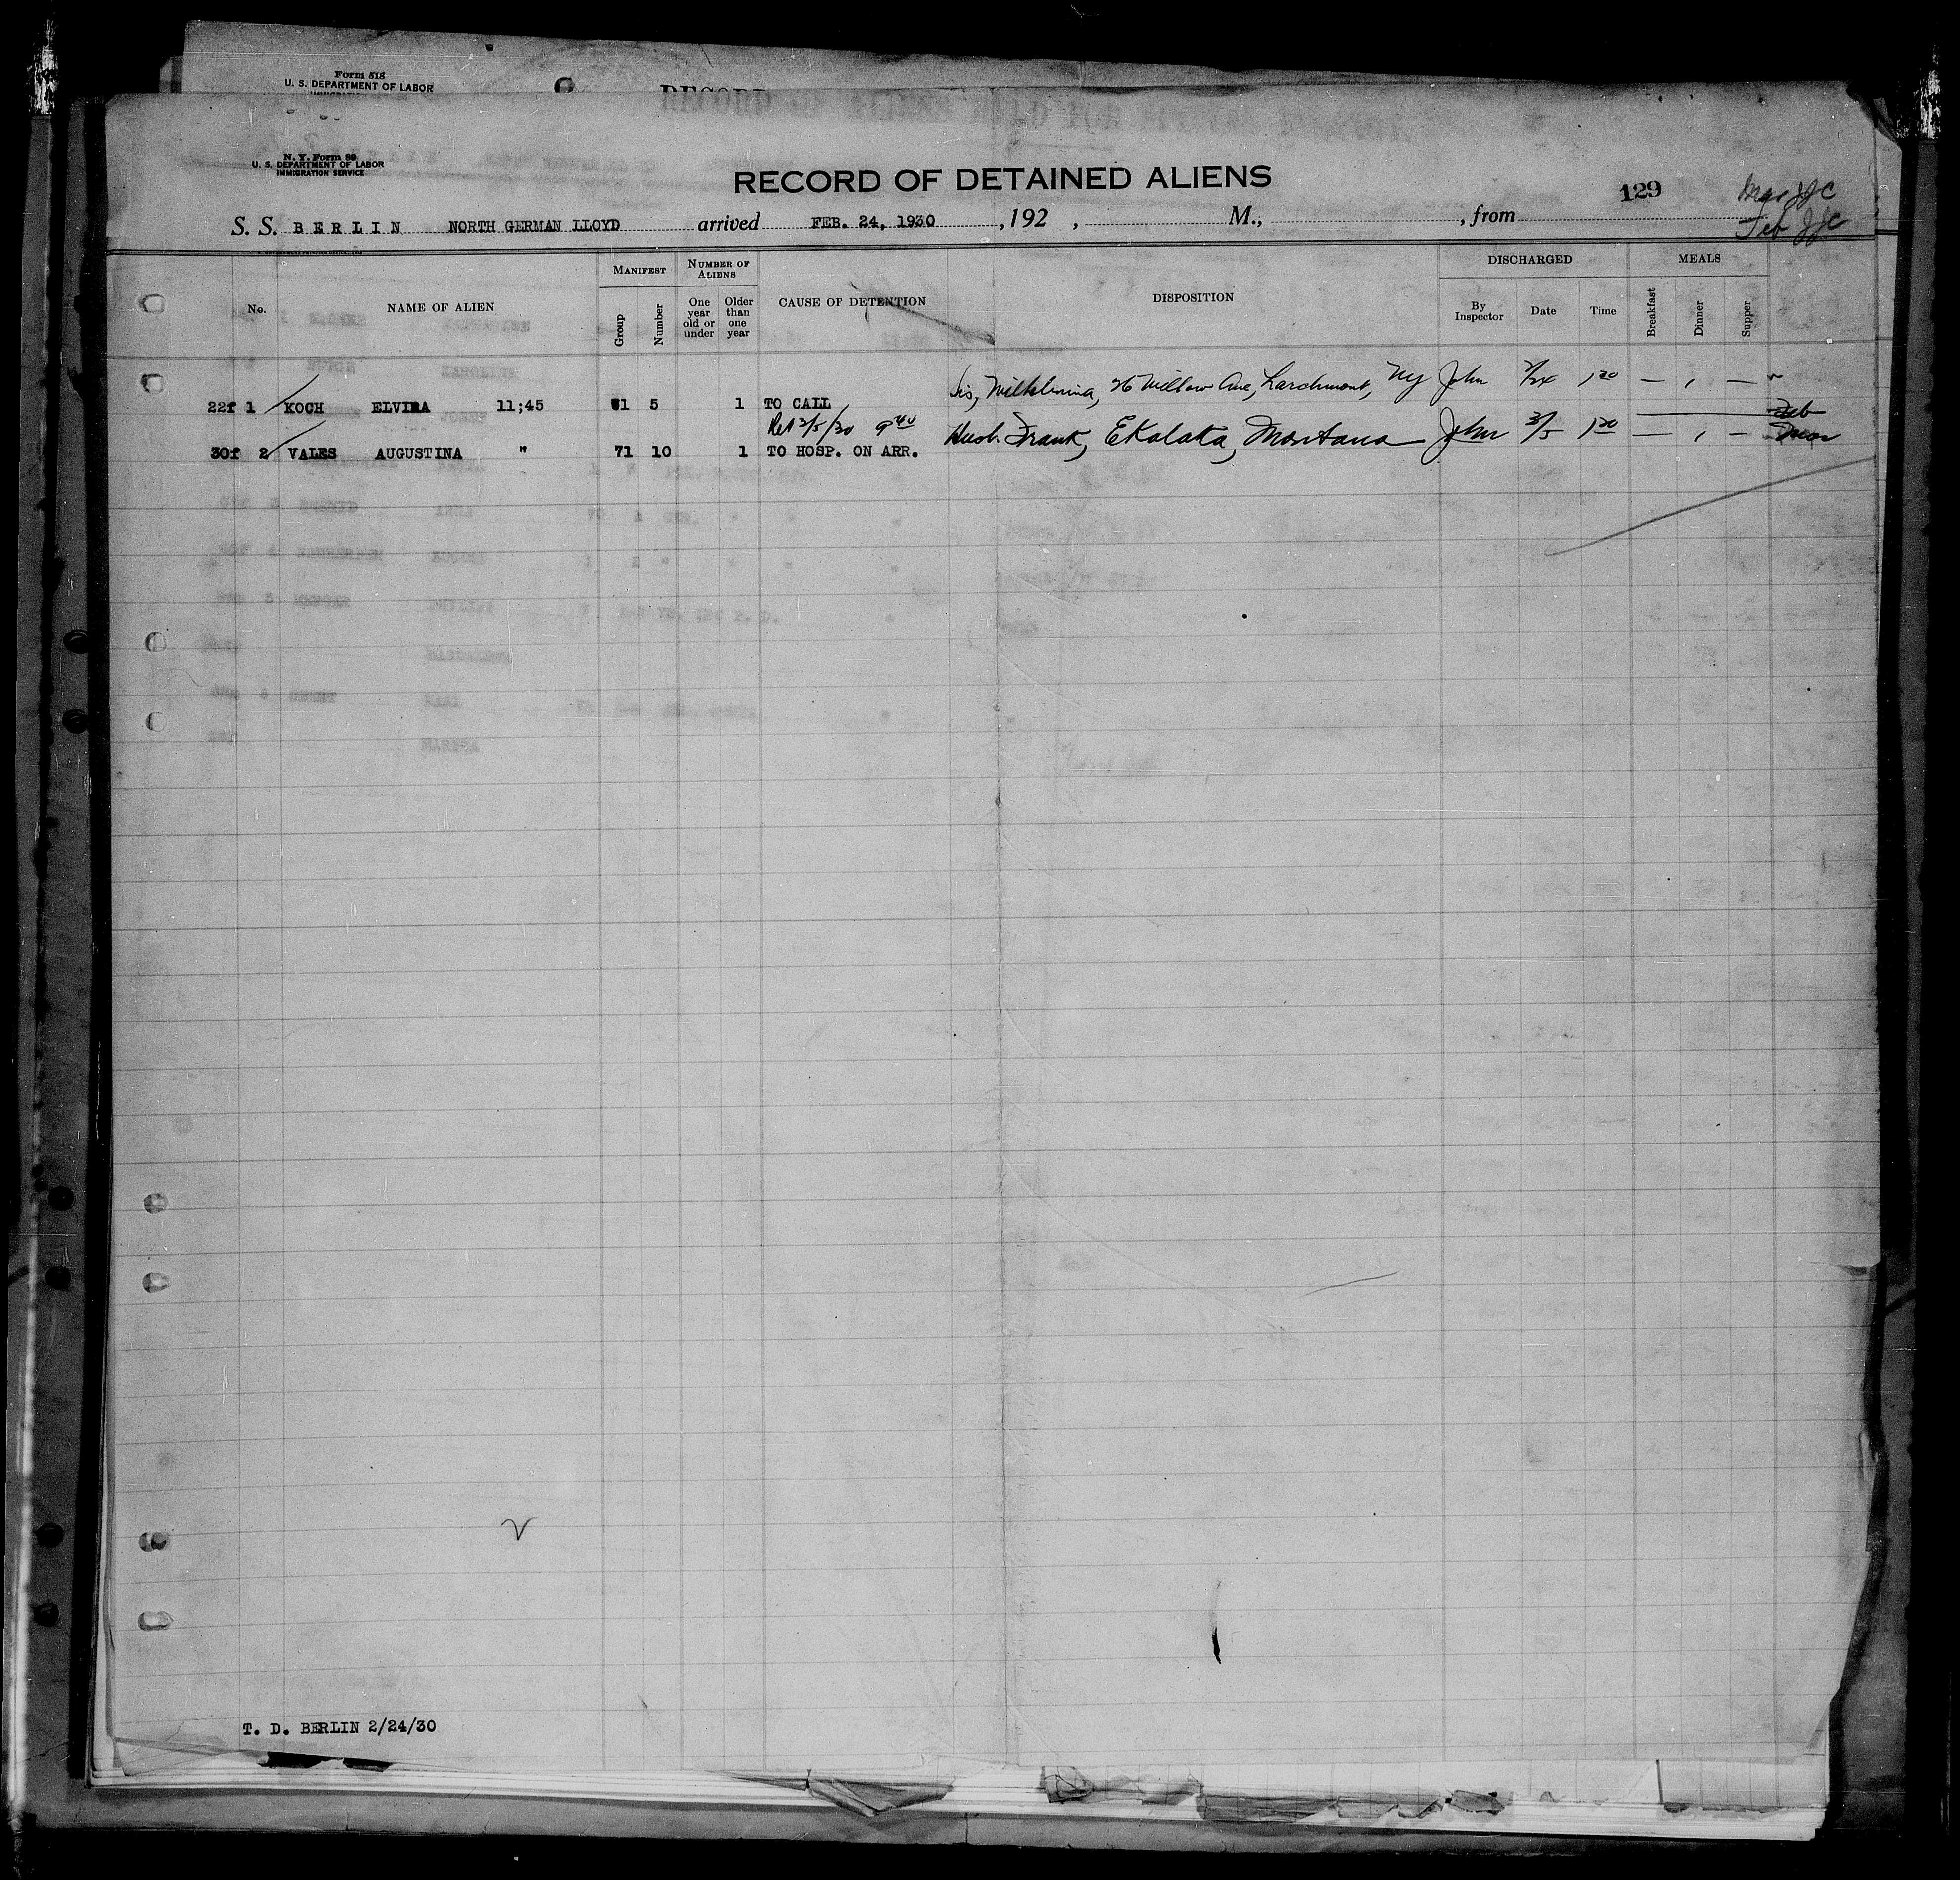 Form 518
U. S. DEPARTMENT OF LABOR
N. Y. Form 89
U. S. DEPARTMENT OF LABOR
IMMIGRATION SERVICE
RECORD OF DETAINED ALIENS
129
Mar JJC
Feb JJC
S. S. BERLIN NORTH GERMAN LLOYD arrived FEB. 24, 1930, 192 , M., , from
No. NAME OF ALIEN MANIFEST Group Number NUMBER OF ALIENS One year old or under Older than one year CAUSE OF DETENTION DISPOSITION DISCHARGED By Inspector Date Time MEALS Breakfast Dinner Supper
22f 1 KOCH ELVIRA 11;45 61 5 1 TO CALL Sis, Wilhelmina, 26 Willow Ave, Larchmont, NY John 2/24 1 20
Feb
30f 2 VALES AUGUSTINA " 71 10 1 Ret 3/5/30 9 40 TO HOSP. ON ARR. Husb. Frank, Ekalaka, Montana John 3/5 1 20 Mar
T. D. BERLIN 2/24/30